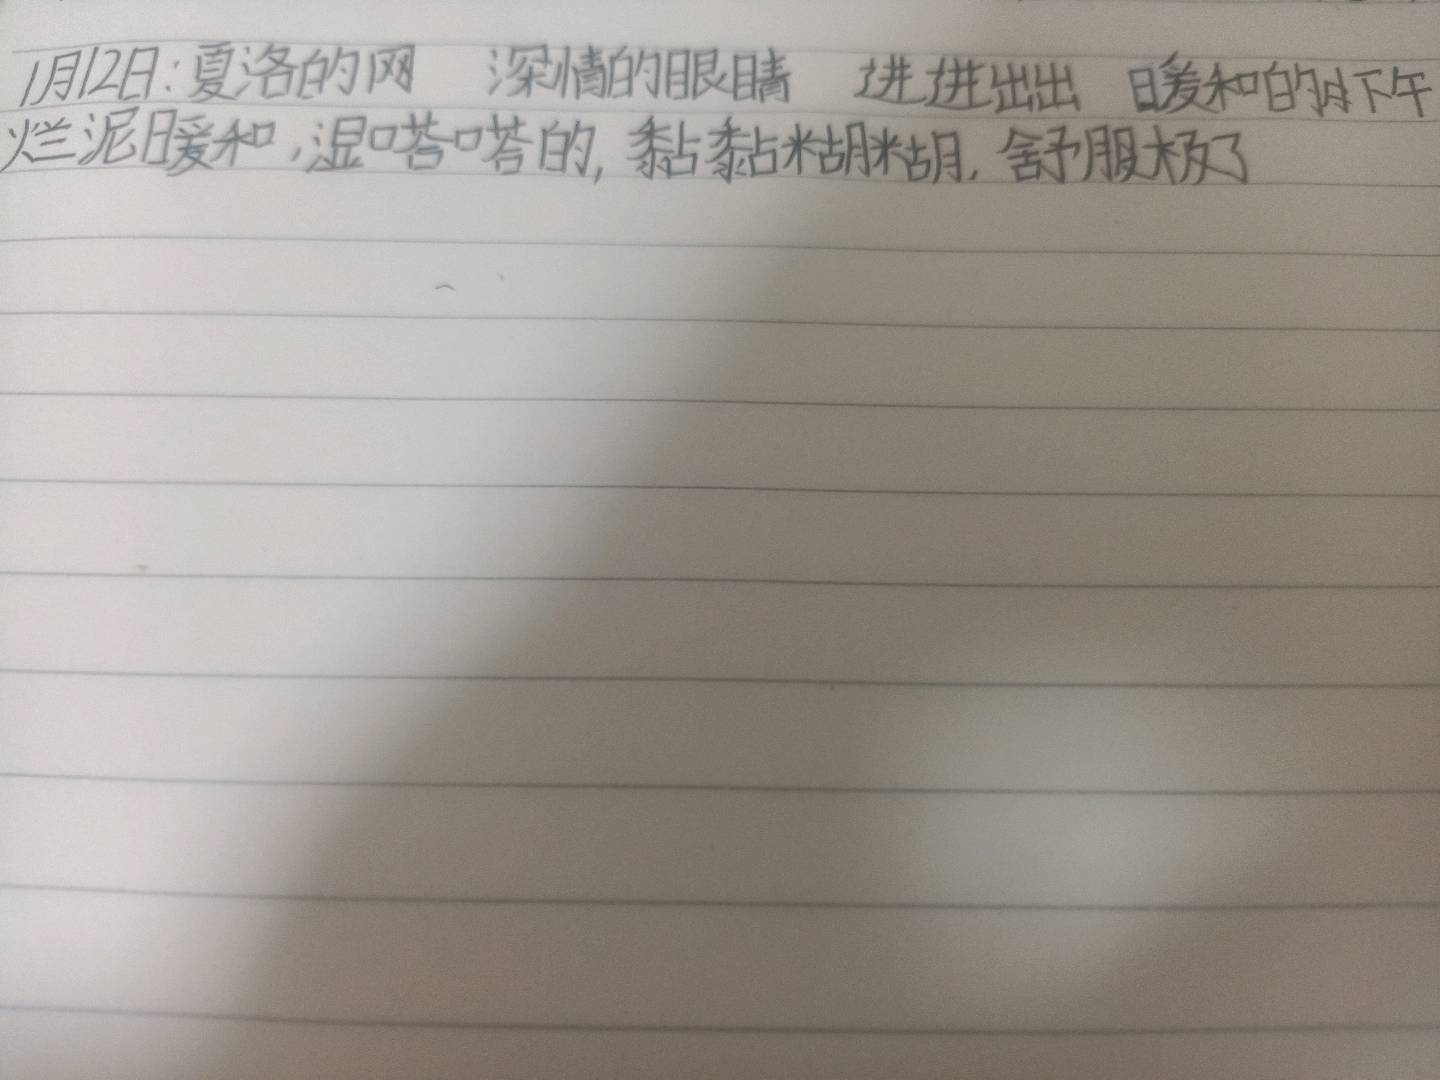 1月12日:夏洛的网 深情的眼睛 进进出出 暖和的下午
烂泥暖和,湿嗒嗒的,黏黏糊糊,舒服极了